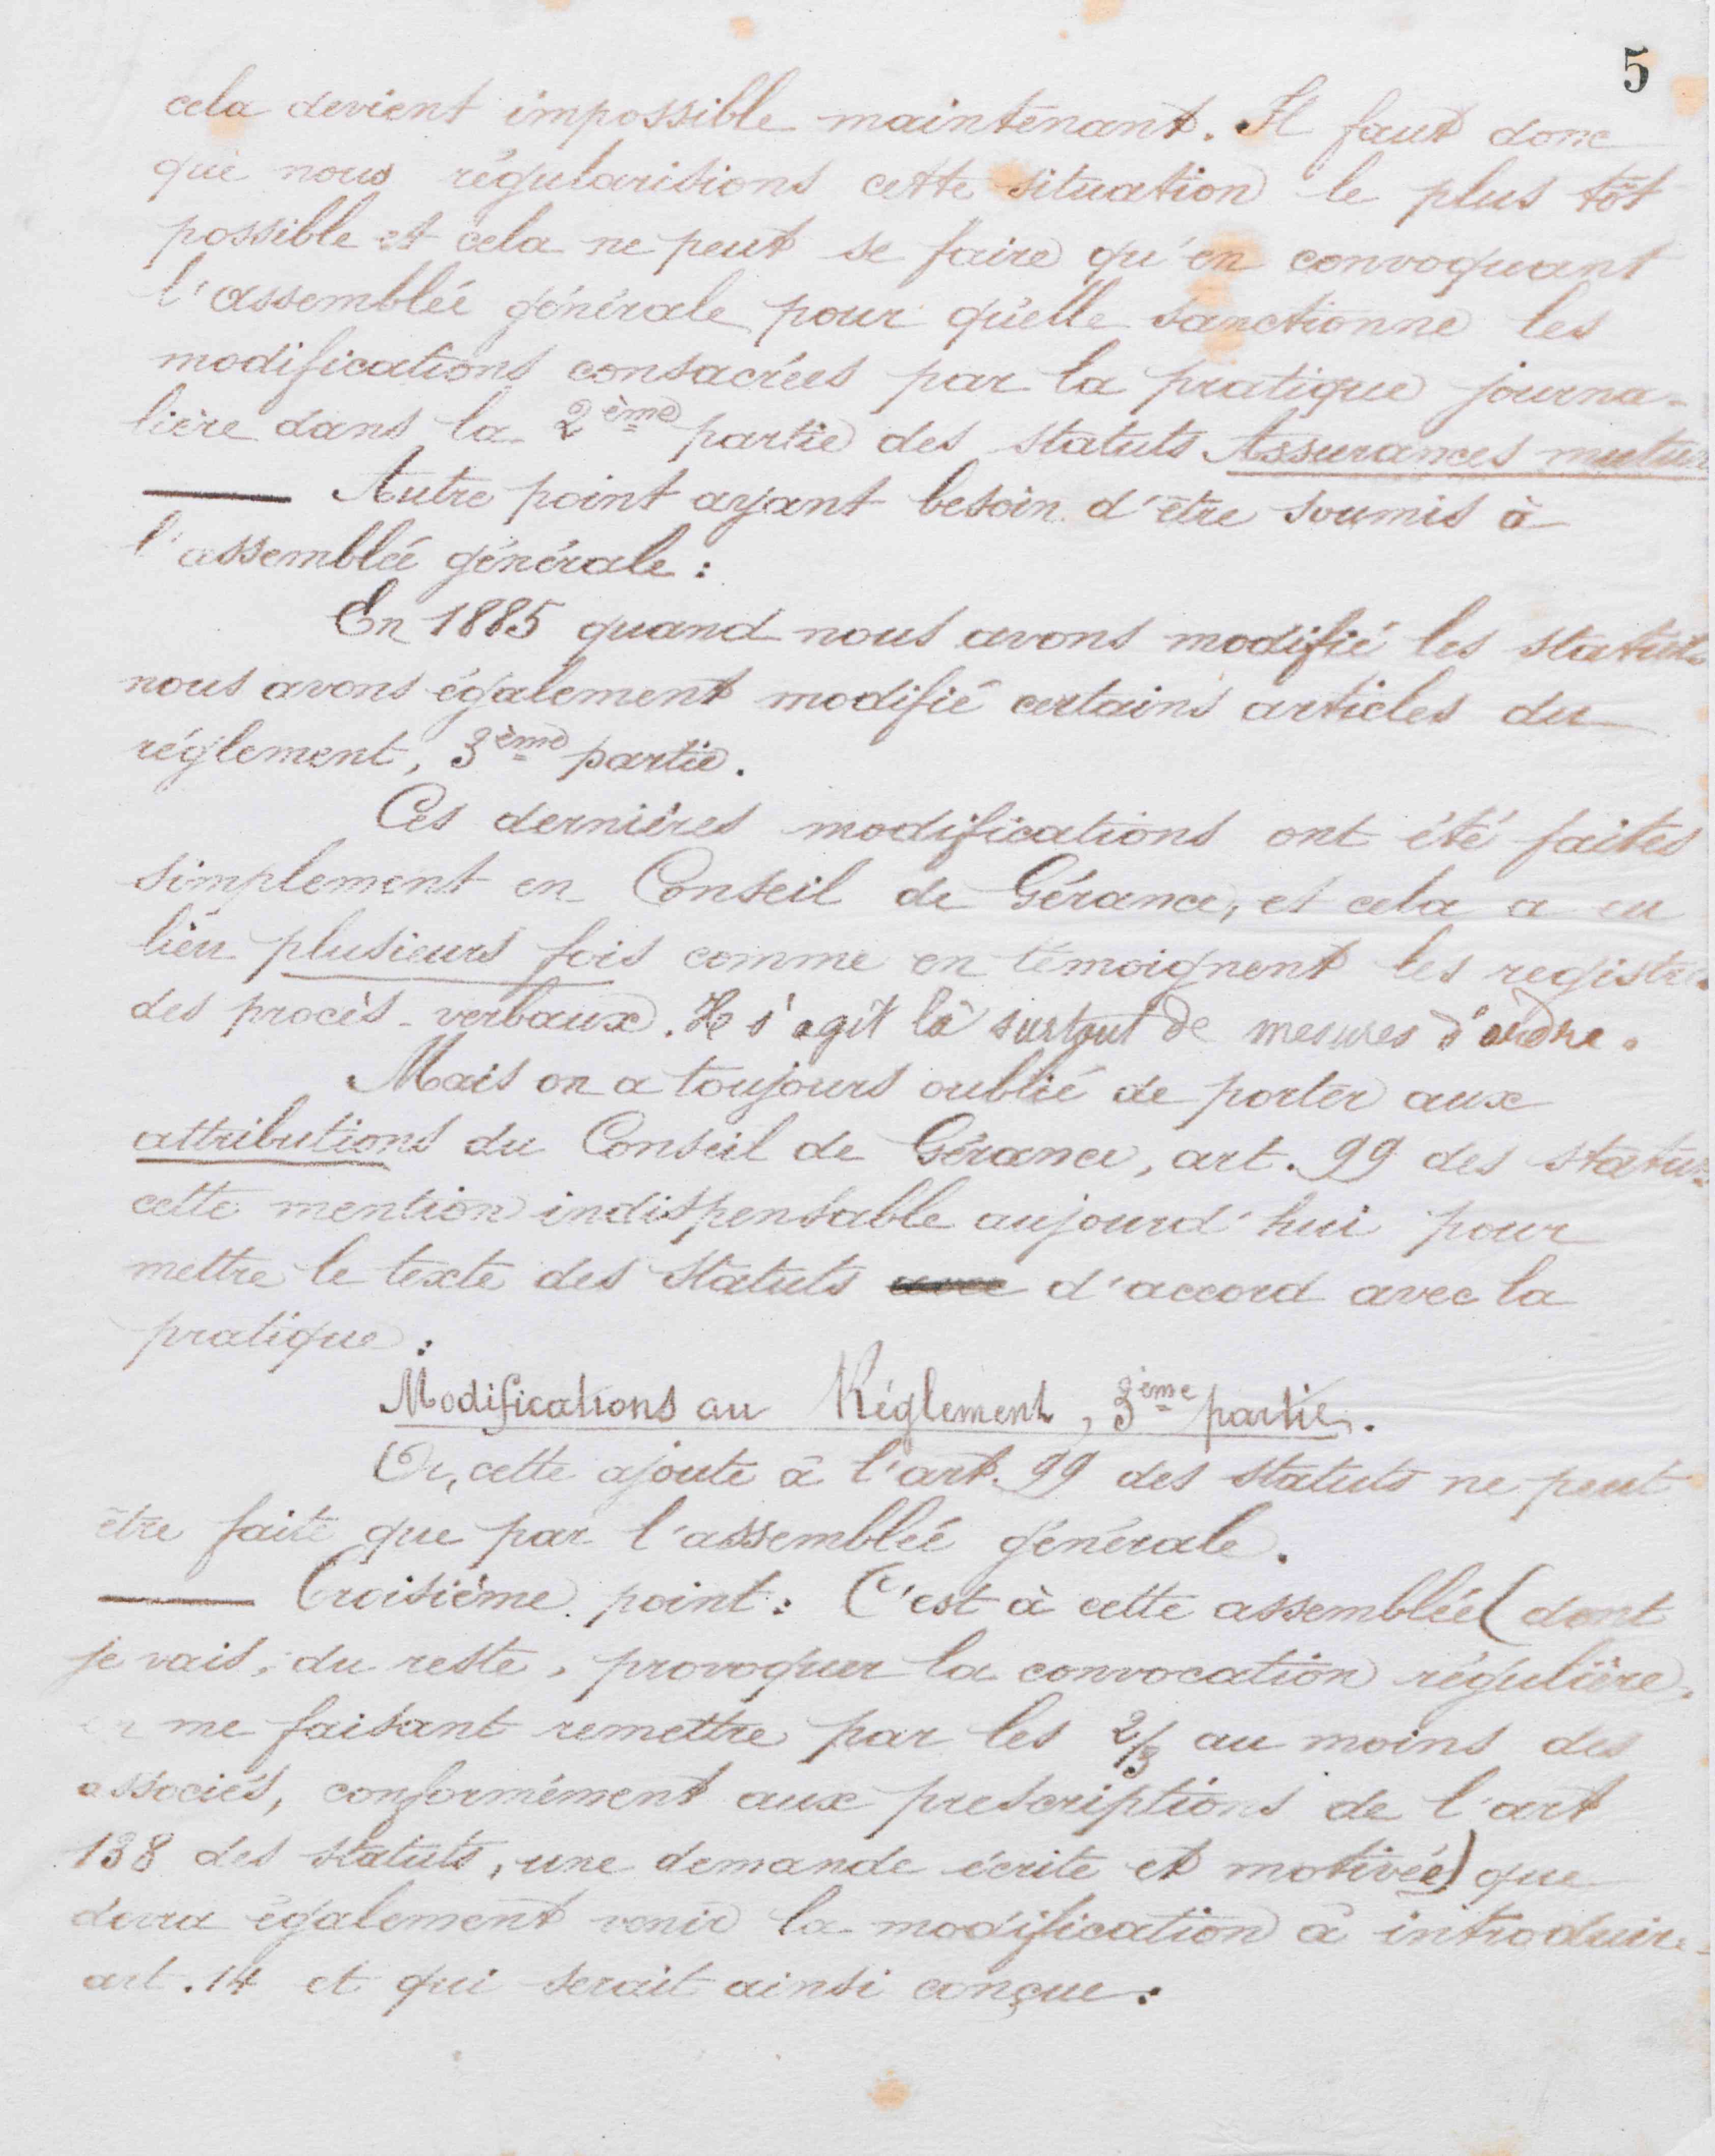 5
cela devient impossible maintenant. Il faut donc
que nous régularisions cette situation le plus tôt
possible et cela ne peut se faire qu'en convoquant
l'assemblée générale pour qu'elle sanctionne les
modifications consacrées par la pratique journa-
lière dans la 2ème partie des statuts Assurances
Autre point ayant besoin d'être soumis à
l'assemblée générale :
En 1885 quand nous avons modifié les statuts
nous avons également modifié certains articles du
réglement, 3ème partie.
Ces dernières modifications ont été faites
simplement en Conseil de Gérance, et cela a eu
lieu plusieurs fois comme en témoignent les registres
des procès-verbaux. Il s'agit là surtout de mesures d'ordre.
Mais on a toujours oublié de porter aux
attributions du Conseil de Gérance, art. 99 des statuts
cette mention indispensable aujourd'hui pour
mettre le texte des statuts avec d'accord avec la
pratique :
Modifications au Réglement, 3ème partie.
Or, cette ajoute à l'art. 99 des statuts ne peut
être faite que par l'assemblée générale.
Troisième point : C'est à cette assemblée (dont
je vais, du reste, provoquer la convocation régulière,
en me faisant remettre par les 2/3 au moins des
associés, conformément aux prescriptions de l'art
138 des statuts, une demande écrite et motivée) que
devra également venir la modification à introduire
art. 14 et qui serait ainsi conçue :